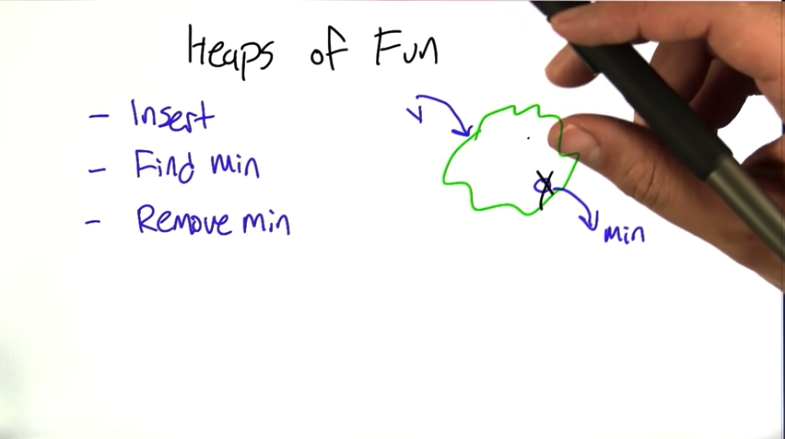 Heaps of Fun
- Insert
- Find min
- Remove min
V
min